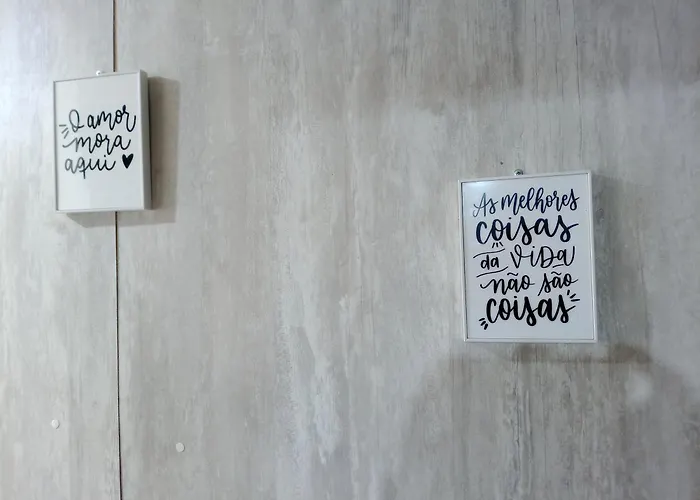 O amor
mora
aqui
As melhores
coisas
da vida
não são
coisas